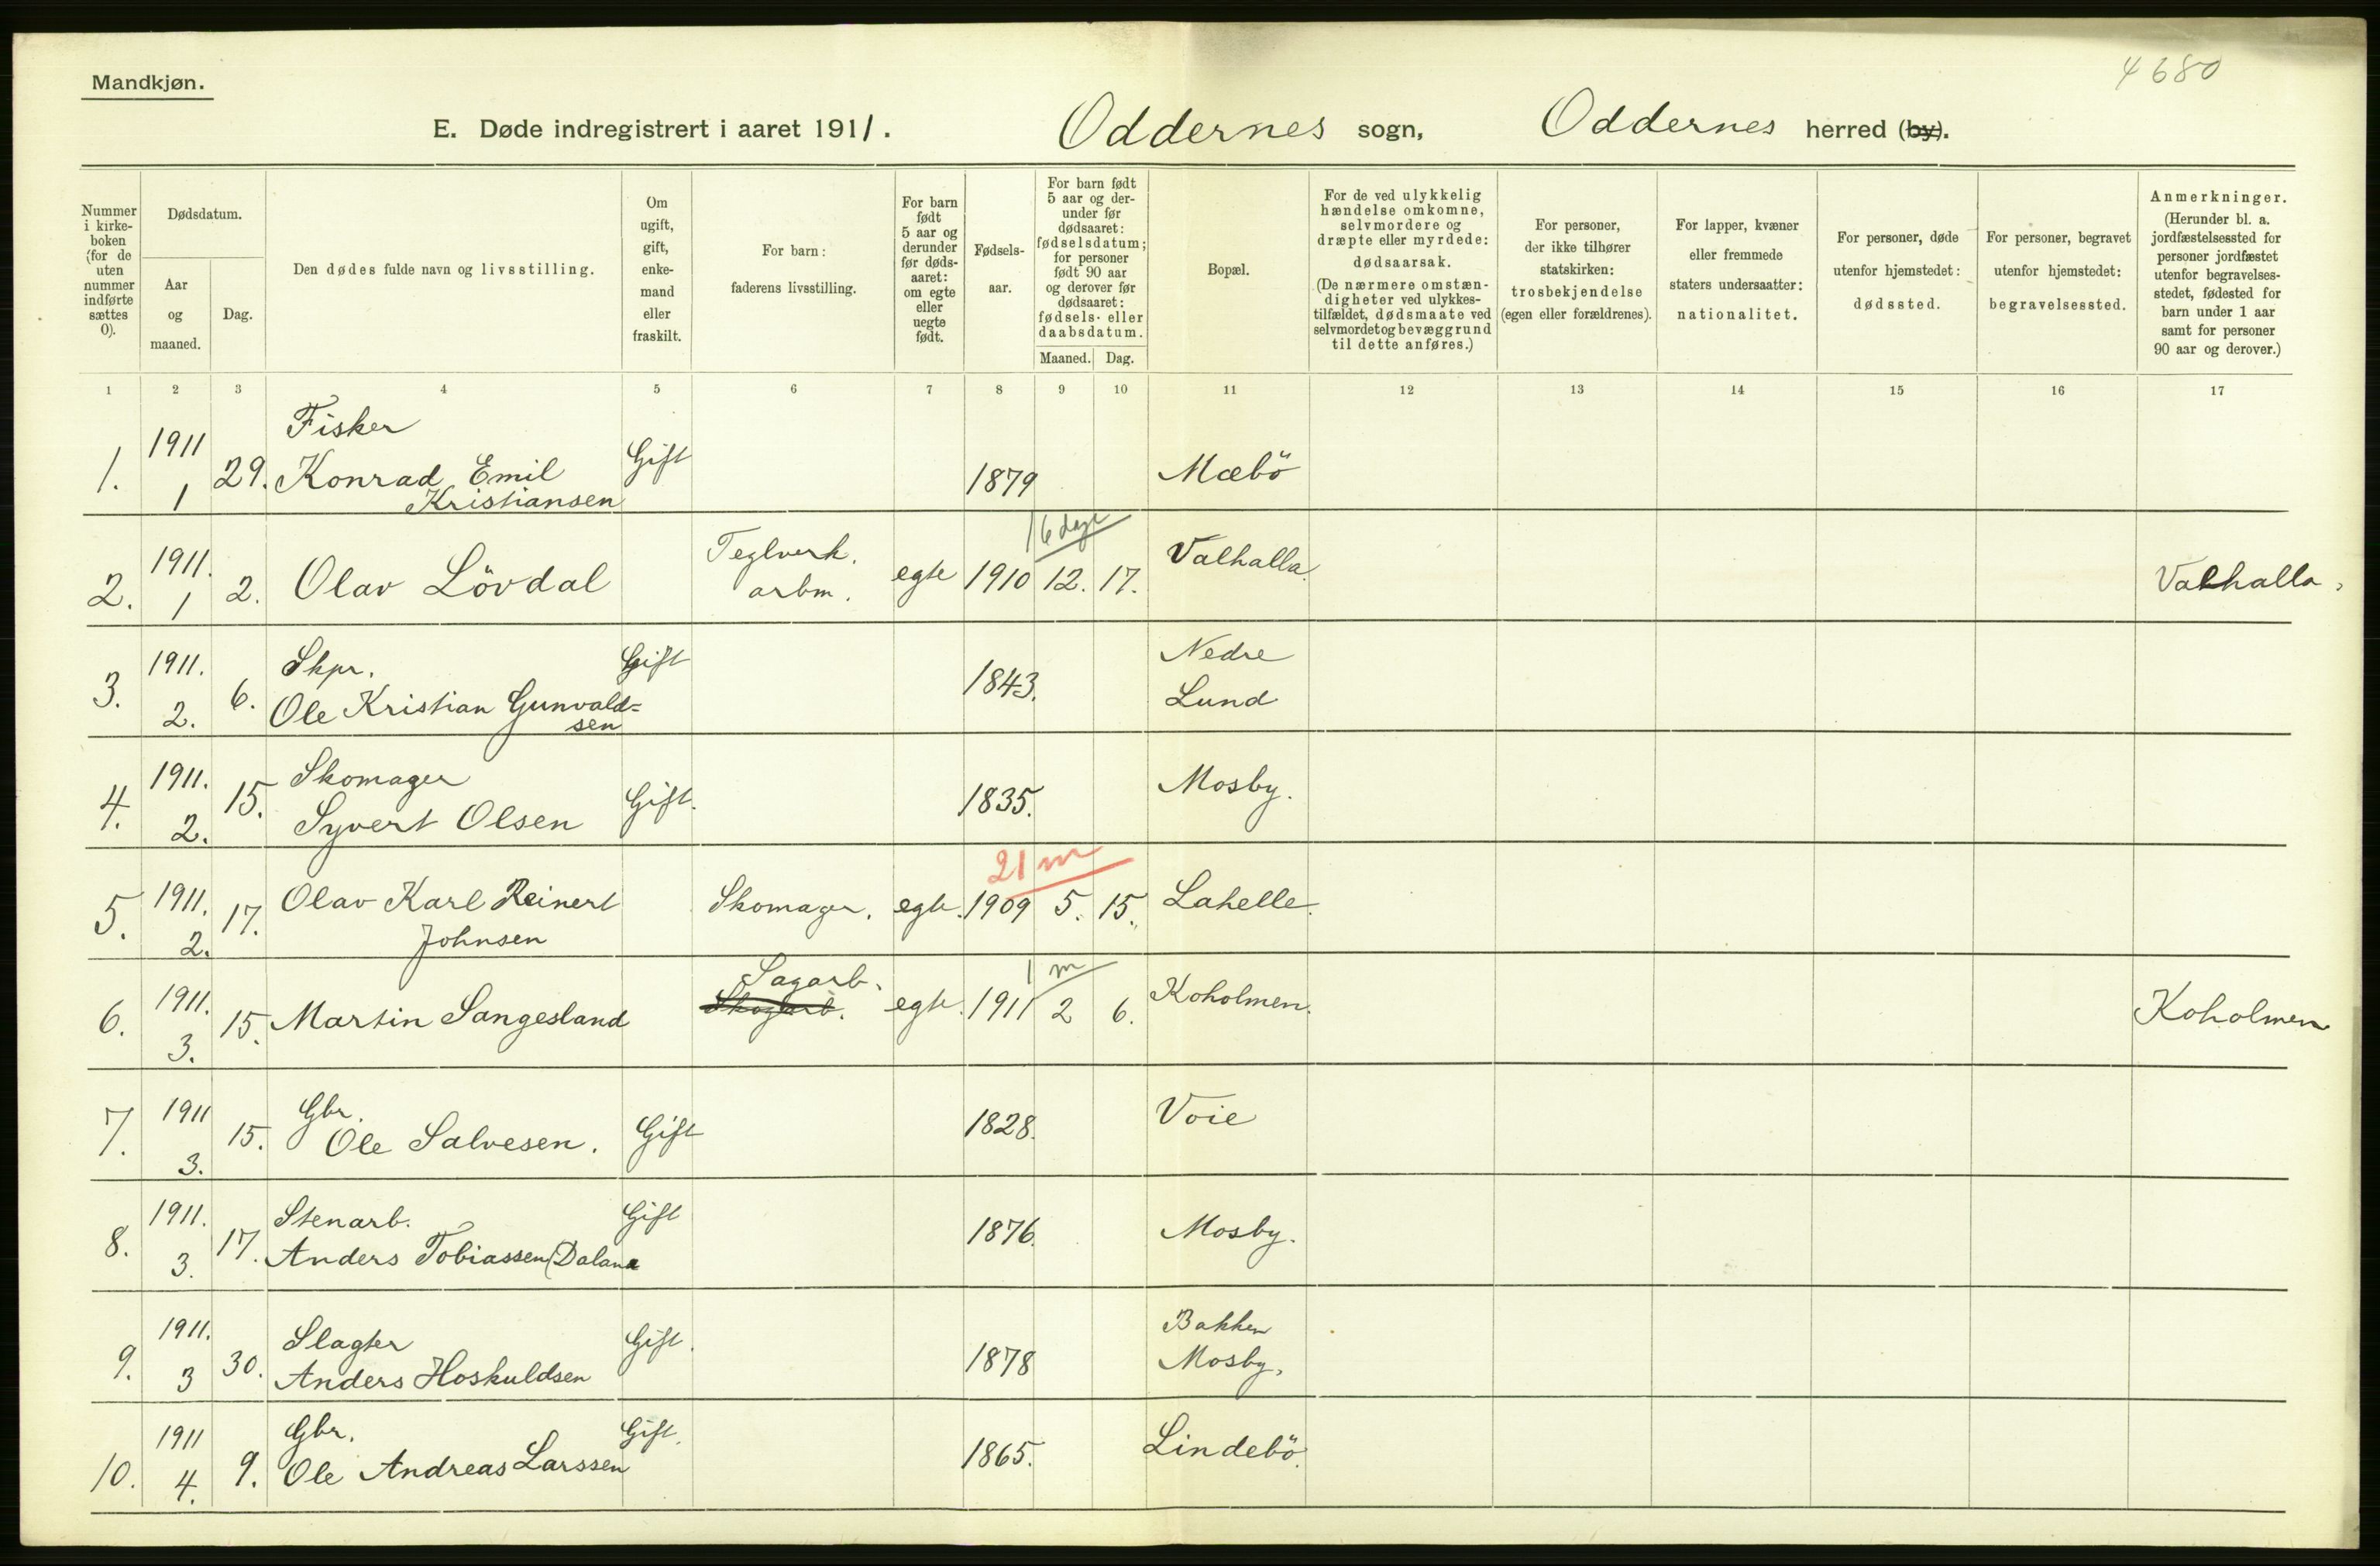 4680
Mandkjøn.
E. Døde indregistrert i aaret 1911. Oddernes sogn, Oddernes herred (by).
Nummer i kirke- boken (for de uten nummer indførte sættes 0).
Dødsdatum.
Aar og maaned.
Dag.
Den dødes fulde navn og livsstilling.
Om ugift, gift, enke- mand eller fraskilt.
For barn: faderens livsstilling.
For barn født 5 aar og derunder før døds- aaret: om egte eller uegte født.
Fødsels- aar.
For barn født 5 aar og der- under før dødsaaret: fødselsdatum; for personer født 90 aar og derover før dødsaaret: fødsels- eller daabsdatum.
Maaned. Dag.
Bopæl.
For de ved ulykkelig hændelse omkomne, selvmordere og dræpte eller myrdede: dødsaarsak. (De nærmere omstæn- digheter ved ulykkes- tilfældet, dødsmaate ved selvmord et og bevæggrund til dette anføres.)
For personer, der ikke tilhører statskirken: trosbekjendelse (egen eller forældrenes).
For lapper, kvæner eller fremmede staters undersaatter: nationalitet.
For personer, døde utenfor hjemstedet: dødssted.
For personer, begravet utenfor hjemstedet: begravelsessted.
Anmerkninger. (Herunder bl. a. jordfæstelsessted for personer jordfæstet utenfor begravelses- stedet, fødested for barn under 1 aar samt for personer 90 aar og derover.)
1 2 3 4 5 6 7 8 9 10 11 12 13 14 15 16 17
1. 1911 1 29. Fisker Konrad Emil Kristiansen Gift 1879 Mæbö
2. 1911. 1 2. Olav Lövdal Teglverk. arbm. egte 1910 12. 17. 16 dage Valhalla. Valhalla.
3. 1911. 2. 6. Skpr. Ole Kristian Gunvald= sen Gift 1843. Nedre Lund
4. 1911. 2. 15. Skomager Syvert Olsen Gift. 1835. Mosby.
5. 1911. 2. 17. Olav Karl Reinert Johnsen Skomager. egte. 1909 5. 15. 21 m Lahelle.
6. 1911. 3. 15. Martin Sangesland Sagarb. Skogarb. egte. 1911 2 6. 1 m Koholmen. Koholmen
7. 1911 3. 15. Gbr. Ole Salvesen. Gift 1828. Voie
8. 1911. 3. 17. Stenarb. Anders Tobiassen (Dalane Gift 1876. Mosby.
9. 1911. 3 30. Slagter Anders Hoskuldsen Gift. 1878 Bakken Mosby.
10. 1911 4. 9. Gbr. Ole Andreas Larssen Gift. 1865. Lindebö.